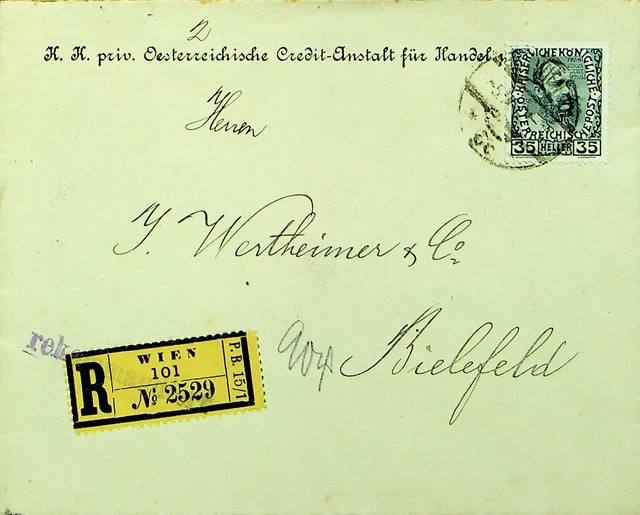 2
K. K. priv. Oesterreichische Credit-Anstalt für Handel
KAISERLICHE KÖNIGLICHE ÖSTERREICHISCHE POST
35 HELLER 35
Herren
J. Wertheimer & Co
Bielefeld
WIEN
101
R
№ 2529
P.B. 15/1